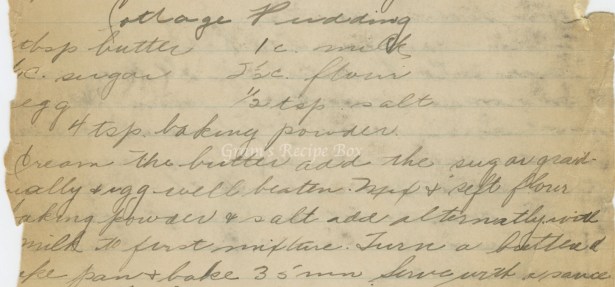 Cottage Pudding
tbsp butter 1 c. milk
½c. sugar 2½c. flour
egg ½ tsp salt
4 tsp. baking powder
Gram's Recipe Box
Cream the butter add the sugar grad-
ually & egg well beaten. Mix & sift flour
baking powder & salt add alternately with
milk to first mixture. Turn a buttered
cake pan & bake 35 min. Serve with a sauce